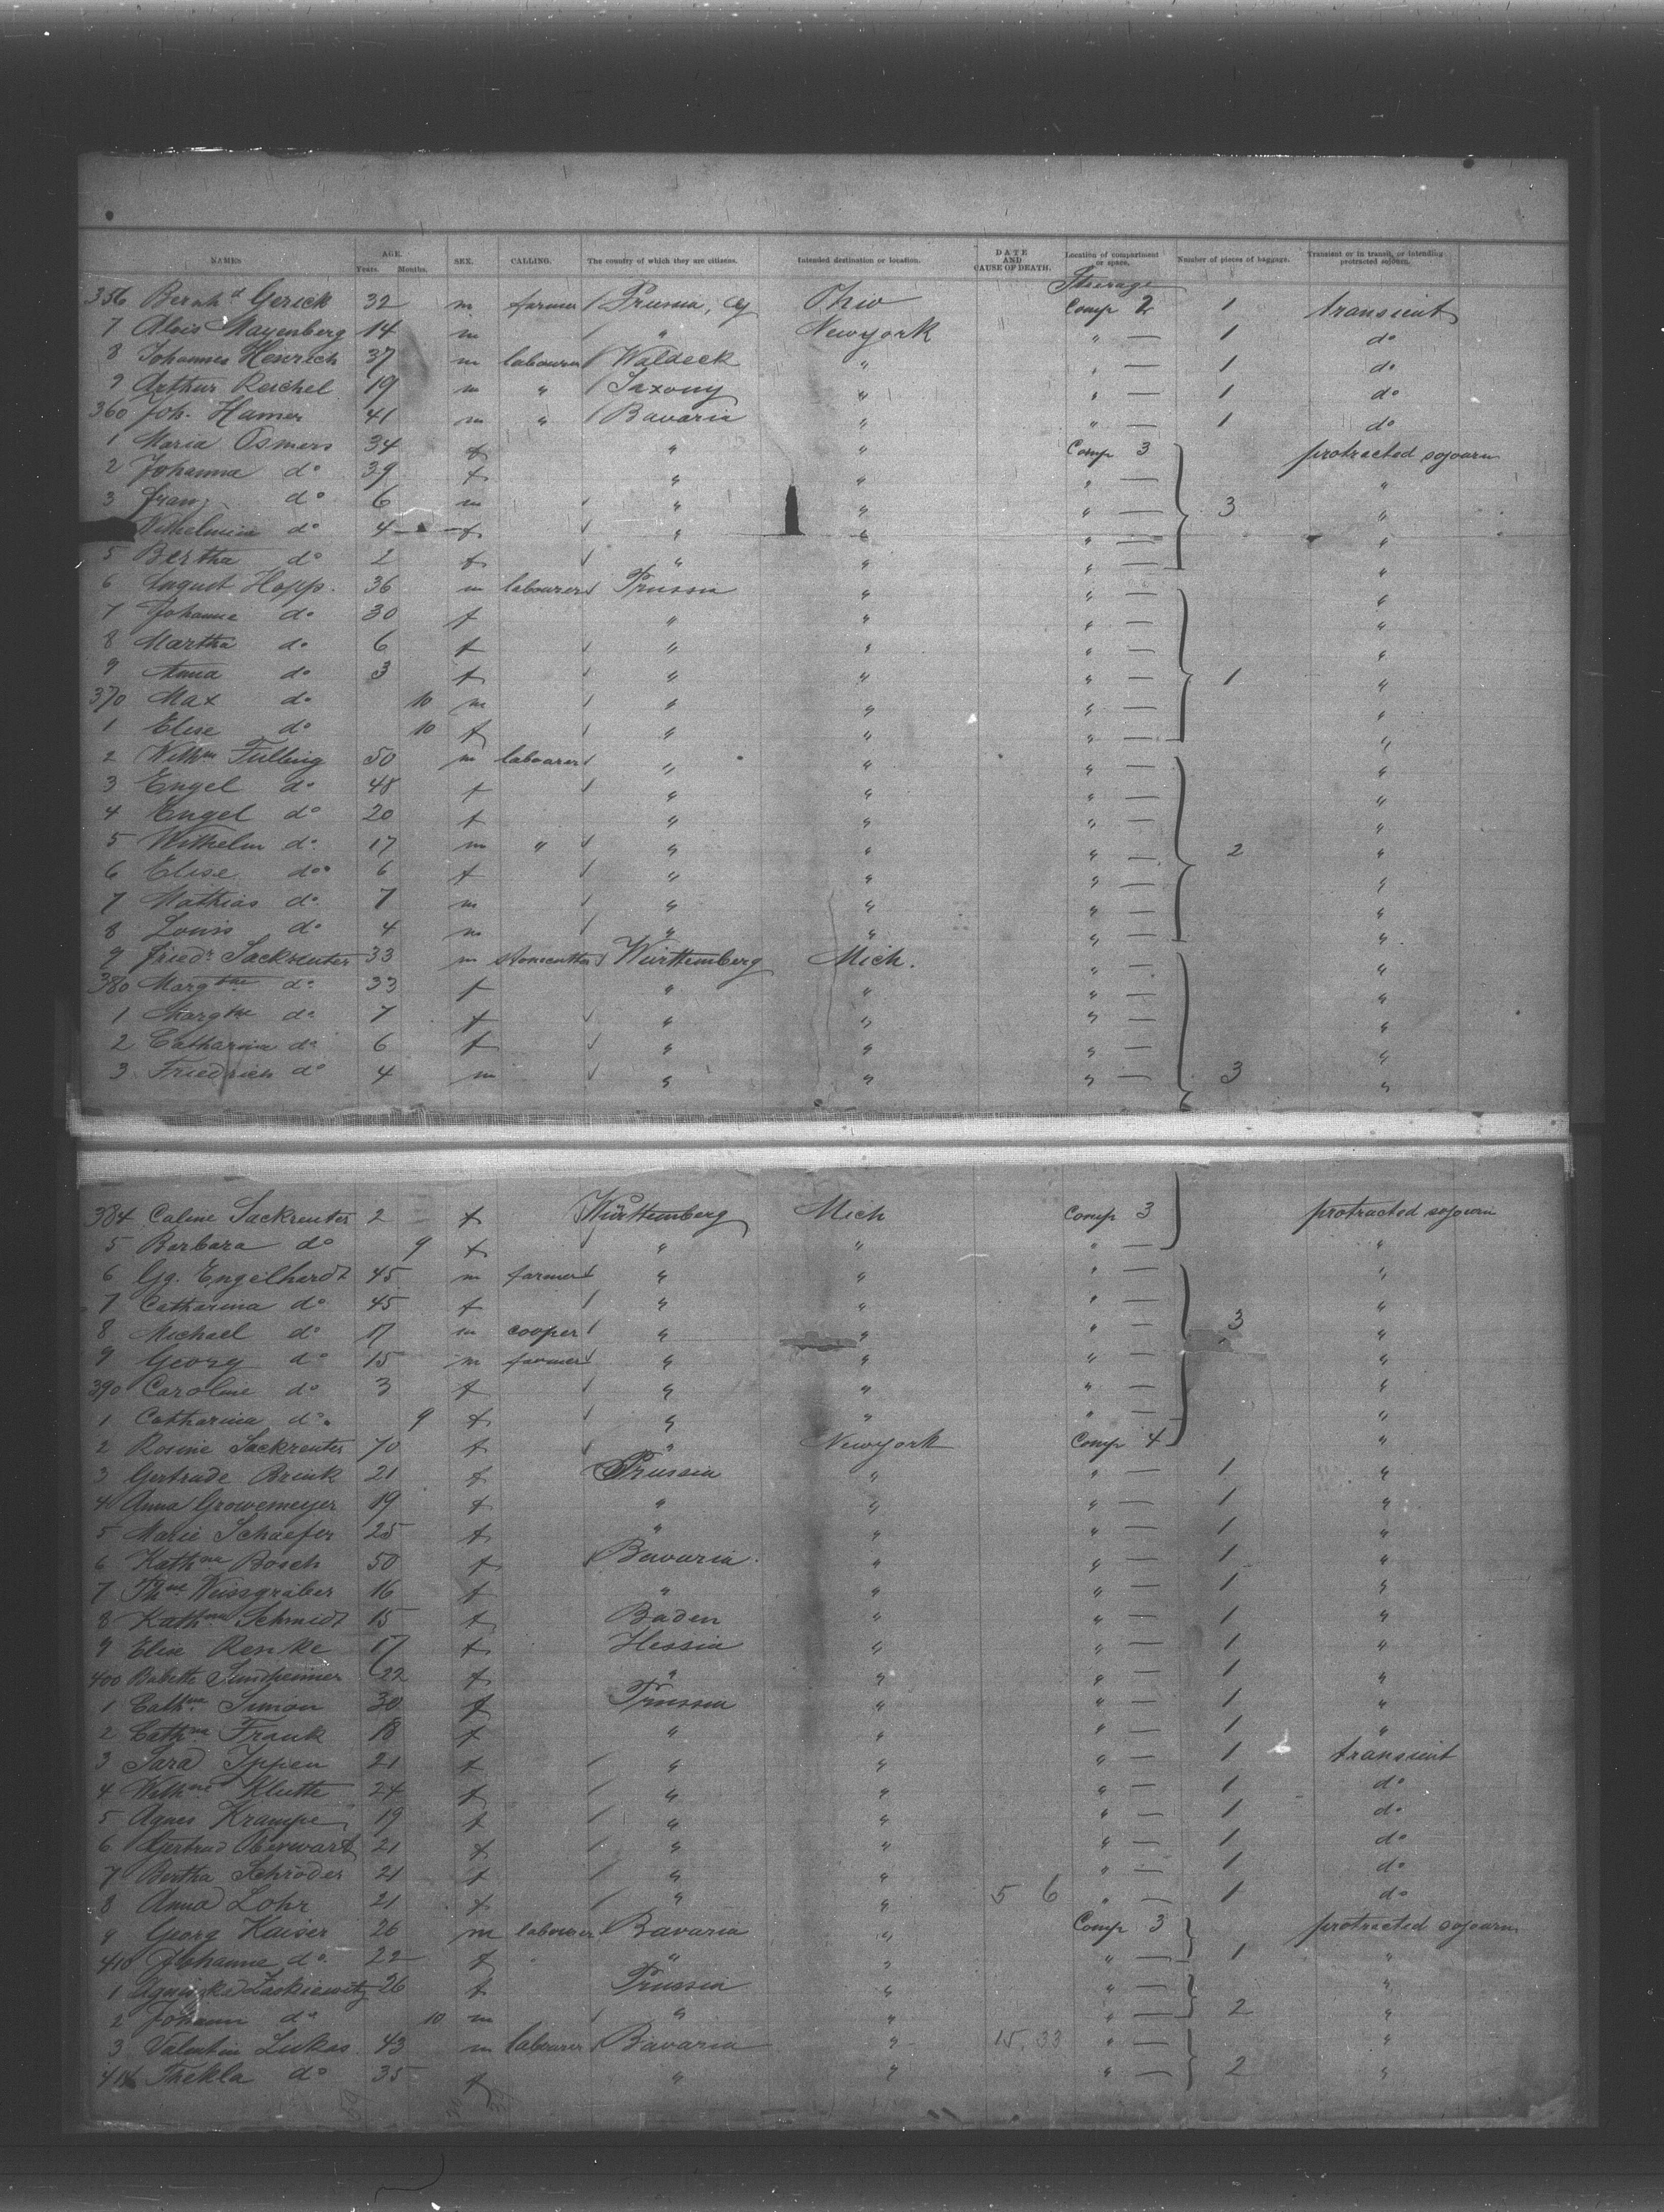 NAMES AGE. Years. Months. SEX. CALLING. The country of which they are citizens. Intended destination or location. DATE AND CAUSE OF DEATH. Location of compartment or space. Number of pieces of baggage. Transient or in transit, or intending protracted sojourn.
Steerage
356 Bernhd Gerick 32 m farmer / Prussia, Ohio Comp 2 1 transient
7 Alois Mayenberg 14 m / " Newyork " — 1 do
8 Johannes Heinrich 37 m labourer / Waldeck " " — 1 do
9 Arthur Reichel 19 m " / Saxony " " — 1 do
360 Joh. Hamer 41 m " / Bavaria " " — 1 do
1 Maria Osmers 34 f " " Comp 3 protracted sojourn
2 Johanna do 39 f " " " — "
3 Franz do 6 m " " " — 3 "
Wilhelmin do 4 — f " " " — "
5 Bertha do 2 f " " " — "
6 August Hopp. 36 m labourer Prussia " " — "
7 Johanne do 30 f " " " — "
8 Martha do 6 f " " " — "
9 Anna do 3 f " " " — 1 "
370 Max do 10 m " " " — "
1 Elise do 10 f " " " — "
2 Wilhm Fülling 50 m labourer " " " — "
3 Engel do 48 f " " " — "
4 Engel do 20 f " " " — "
5 Wilhelm do 17 m " " " " — 2 "
6 Elise do 6 f " " " — "
7 Mathias do 7 m " " " — "
8 Louis do 4 m " " " — "
9 Friedr Sackreuter 33 m stonecutter Württemberg Mich. " — "
380 Margthe do 33 f " " " — "
1 Margthe do 7 f " " " — "
2 Catharina do 6 f " " " — "
3 Friedrich do 4 m " " " — 3 "
384 Caline Sackreuter 2 f Württemberg Mich Comp 3 protracted sojourn
5 Barbara do 9 f " " " — "
6 Gg. Engelhardt 45 m farmer " " " — "
7 Catharina do 45 f " " " — "
8 Michael do 17 m cooper " " " — 3 "
9 Georg do 15 m farmer " " " — "
390 Caroline do 3 f " " " — "
1 Catharina do 9 f " " " — "
2 Rosine Sackreuter 70 f " Newyork Comp 4 "
3 Gertrude Brink 21 f Prussia " " — 1 "
4 Anna Growemeyer 19 f " " " — 1 "
5 Marie Schaefer 25 f " " " — 1 "
6 Kathna Bosch 50 f Bavaria " " — 1 "
7 Weissgräber 16 f " " " — 1 "
8 Kathna Schmidt 15 f Baden " " — 1 "
9 Elise Renke 17 f Hessia " " — 1 "
400 Babette Sundheimer 22 f " " " — 1 "
1 Cathna Simon 30 f Prussia " " — 1 "
2 Cathna Frank 18 f " " " — 1 "
3 Sara Ippen 21 f / " " " — 1 transient
4 Wilhne Klutte 24 f / " " " — 1 do
5 Agnes Krampe 19 f / " " " — 1 do
6 Gertrud Oberwart 21 f / " " " — 1 do
7 Bertha Schröder 21 f / " " " — 1 do
8 Anna Lohr 21 f / " " 5 6 " — 1 do
9 Georg Kaiser 26 m labourer Bavaria " Comp 3 protracted sojourn
410 Johanne do 22 f " " " — 1 "
1 Agnieska Laskiewitz 26 f Prussia " " — "
2 Johann do 10 m " " " — 2 "
3 Valentin Lukas 43 m labourer Bavaria " 15. 33 " — "
414 Thekla do 35 f " " " — 2 "